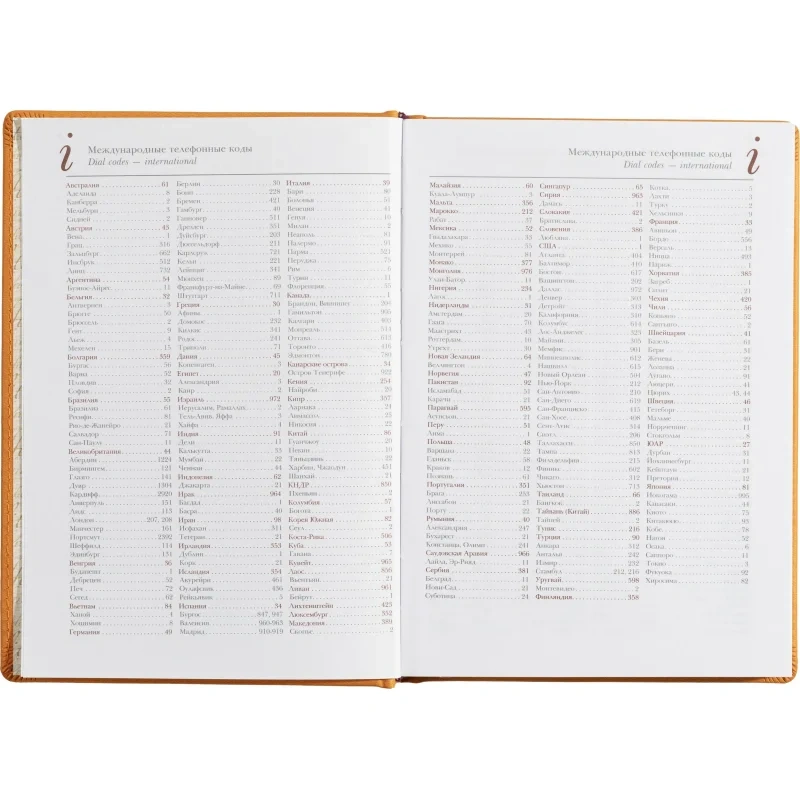 i
Международные телефонные коды
Dial codes — international
Австралия 61
Аделаида 8
Канберра 2
Мельбурн 3
Сидней 2
Австрия 43
Вена 1
Грац 316
Зальцбург 662
Инсбрук 512
Линц 732
Аргентина 54
Буэнос-Айрес 11
Бельгия 32
Антверпен 3
Брюгге 50
Брюссель 2
Гент 9
Льеж 4
Мехелен 15
Болгария 359
Бургас 56
Варна 52
Пловдив 32
София 2
Бразилия 55
Бразилиа 61
Ресифи 81
Рио-де-Жанейро 21
Салвадор 71
Сан-Паулу 11
Великобритания 44
Абердин 1224
Бирмингем 121
Глазго 141
Дувр 1304
Кардифф 2920
Ливерпуль 151
Лидс 113
Лондон 207, 208
Манчестер 161
Портсмут 2392
Шеффилд 114
Эдинбург 131
Венгрия 36
Будапешт 1
Дебрецен 52
Печ 72
Сегед 62
Вьетнам 84
Ханой 4
Хошимин 8
Германия 49
Берлин 30
Бонн 228
Бремен 421
Гамбург 40
Ганновер 511
Дрезден 351
Дуйсбург 203
Дюссельдорф 211
Карлсруэ 721
Кельн 221
Лейпциг 341
Мюнхен 89
Франкфурт-на-Майне 69
Штутгарт 711
Греция 30
Афины 1
Домокос 232
Килкис 341
Родос 241
Триполи 71
Дания 45
Копенгаген 3
Египет 20
Александрия 3
Каир 2
Израиль 972
Иерусалим, Рамаллах 2
Тель-Авив, Яффа 3
Хайфа 4
Индия 91
Дели 11
Калькутта 33
Мумбаи 22
Ченнаи 44
Индонезия 62
Джакарта 21
Ирак 964
Багдад 1
Басра 40
Иран 98
Исфахан 311
Тегеран 21
Ирландия 353
Дублин 1
Корк 21
Исландия 354
Акурейри 461
Рейкьявик 5
Испания 34
Бургос 947, 947
Валенсия 960-963
Мадрид 910-919
Италия 39
Бари 80
Болонья 51
Венеция 41
Генуя 10
Милан 2
Неаполь 81
Палермо 91
Парма 521
Перуджа 75
Рим 6
Турин 11
Флоренция 55
Канада 1
Брандон, Виннипег 204
Гамильтон 905
Калгари 403
Монреаль 514
Оттава 613
Торонто 416
Эдмонтон 780
Канарские острова 34
Остров Тенерифе 922
Кения 254
Найроби 20
Кипр 357
Ларнака 24
Лимассол 25
Никосия 22
Китай 86
Гуанчжоу 20
Пекин 10
Тяньцзинь 22
Харбин, Чжаодун 451
Шанхай 21
КНДР 850
Пхеньян 2
Колумбия 57
Богота 1
Корея Южная 82
Сеул 2
Коста-Рика 506
Куба 53
Гавана 7
Кувейт 965
Лаос 856
Вьентьян 21
Ливан 961
Бейрут 1
Лихтенштейн 423
Люксембург 352
Македония 389
Скопье 2
Международные телефонные коды
Dial codes — international
i
Малайзия 60
Куала-Лумпур 3
Мальта 356
Марокко 212
Рабат 37
Мексика 52
Гвадалахара 33
Мехико 55
Монтеррей 81
Монако 377
Монголия 976
Улан-Батор 14
Нигерия 234
Лагос 1
Нидерланды 31
Амстердам 20
Гаага 70
Маастрихт 43
Роттердам 10
Утрехт 30
Новая Зеландия 64
Веллингтон 4
Норвегия 47
Пакистан 92
Исламабад 51
Карачи 21
Парагвай 595
Асунсьон 21
Перу 51
Лима 1
Польша 48
Варшава 22
Гданьск 58
Краков 12
Познань 61
Португалия 351
Брага 253
Лиссабон 21
Порту 22
Румыния 40
Александрия 247
Бухарест 21
Саудовская Аравия 966
Сербия 381
Белград 11
Нови-Сад 21
Суботица 24
Сингапур 65
Сирия 963
Дамаск 11
Словакия 421
Братислава 2
Словения 386
Любляна 1
США 1
Атланта 404
Балтимор 410
Бостон 617
Вашингтон 202
Даллас 972
Денвер 303
Детройт 313
Калифорния 310
Колумбус 614
Лос-Анджелес 323
Майами 305
Мемфис 901
Миннеаполис 612
Нашвилл 615
Новый Орлеан 504
Нью-Йорк 212
Сан-Антонио 210
Сан-Диего 619
Сан-Франциско 415
Сан-Хосе 408
Сент-Луис 314
Сиэтл 206
Таллахасси 850
Тампа 813
Филадельфия 215
Финикс 602
Чикаго 312
Хьюстон 713
Таиланд 66
Бангкок 2
Тайвань (Китай) 886
Тайпей 2
Тунис 216
Турция 90
Анкара 312
Анталья 242
Измир 232
Стамбул 212, 216
Уругвай 598
Монтевидео 2
Финляндия 358
Котка 5
Лахти 3
Турку 2
Хельсинки 9
Франция 33
Авиньон 49
Бордо 556
Версаль 13
Ницца 493
Париж 1
Хорватия 385
Загреб 1
Сплит 21
Чехия 420
Чили 56
Сантьяго 2
Швейцария 41
Базель 61
Берн 31
Женева 22
Лозанна 21
Лугано 91
Люцерн 41
Цюрих 43, 44
Швеция 46
Гетеборг 31
Мальме 40
Норрчепинг 11
Стокгольм 8
ЮАР 27
Дурбан 31
Йоханнесбург 11
Кейптаун 21
Претория 12
Япония 81
Иокогама
Кавасаки 44
Киото 75
Китакюсю 93
Кобе 78
Нагоя 52
Осака 6
Саппоро 11
Токио 3
Фукуока 92
Хиросима 82